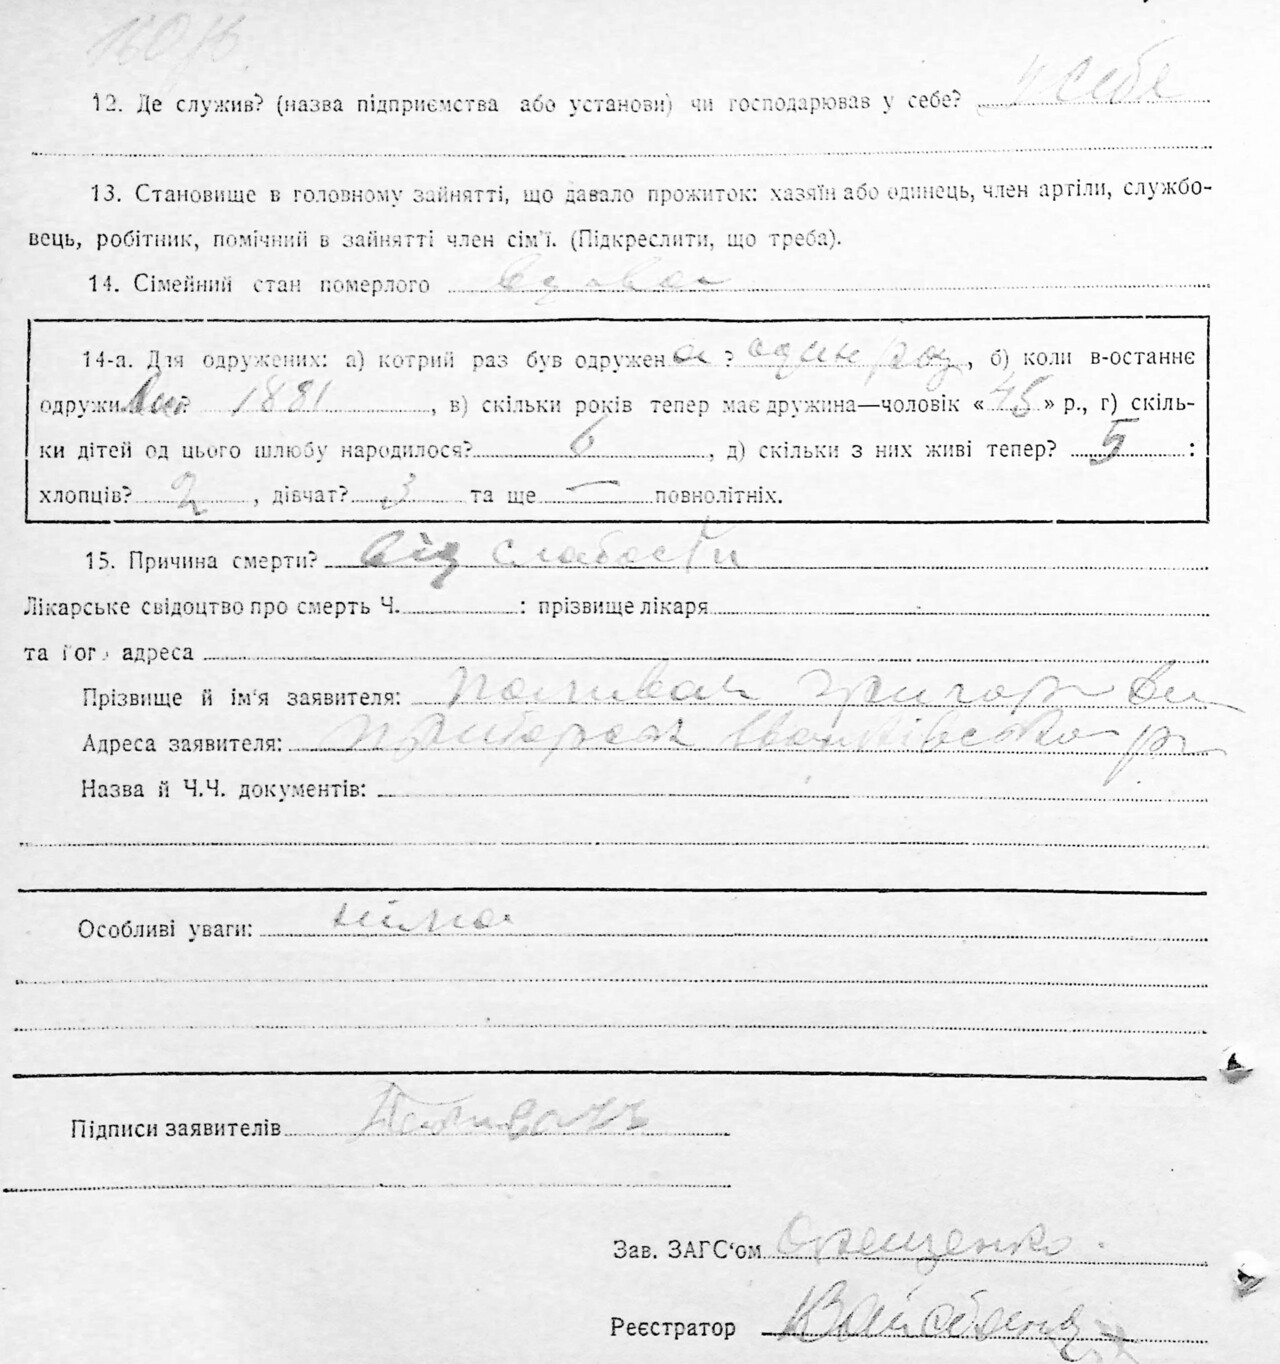 12. Де служив? (назва підприємства або установи) чи господарював у себе? у себе
13. Становище в головному зайнятті, що давало прожиток: хазяїн або одинець, член артіли, службо-
вець, робітник, помічний в зайнятті член сім'ї. (Підкреслити, що треба).
14. Сімейний стан померлого вдова
14-а. Для одружених: а) котрий раз був одружена? один раз, б) коли в-останнє
одружи 1881, в) скільки років тепер має дружина—чоловік «45» р., г) скіль-
ки дітей од цього шлюбу народилося? 6, д) скільки з них живі тепер? 5:
хлопців? 2, дівчат? 3 та ще — повнолітніх.
15. Причина смерти? Від слабости
Лікарське свідоцтво про смерть Ч. : прізвище лікаря
та його адреса
Прізвище й ім'я заявителя: Поливач Григор
Адреса заявителя:
Назва й Ч.Ч. документів:
Особливі уваги: нема
Підписи заявителів
Зав. ЗАГС'ом Онещенко
Реєстратор